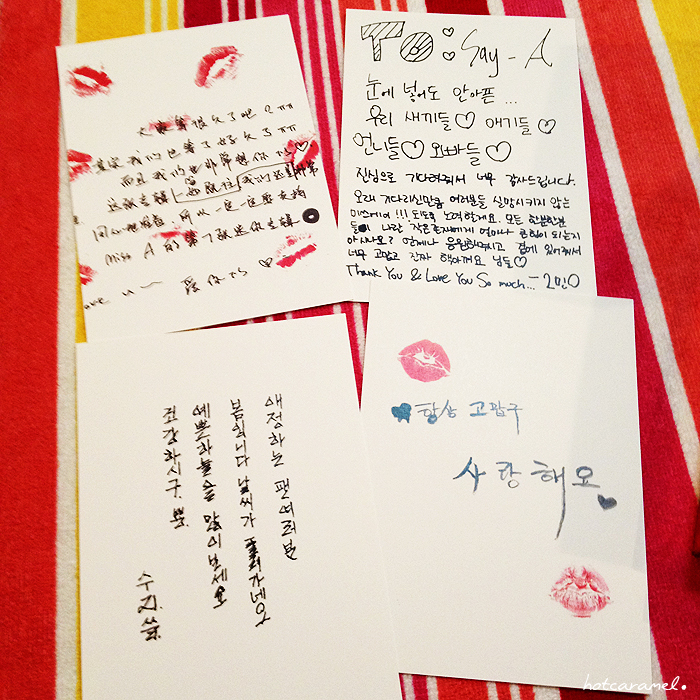 大家等很久了吧 ㅠㅠ
我们也等了好久了 ㅠㅠ
而且我们也非常想你们 ♡
这张专辑一如既往 我们还是非常
用心地准备，所以一定一定要支持
Miss A 的
Love u~ 爱你们 ♡
To: Say-A
눈에 넣어도 안아픈...
우리 새끼들♡ 애기들♡
언니들♡ 오빠들♡
진심으로 기다려줘서 너무 감사드립니다.
오래 기다리신만큼 여러분들 실망시키지 않는
미쓰에이!!! 되도록 노력할게요. 모든 한분한분
들이 나란 작은존재에게 얼마나 큰힘이 되는지
아시나요? 언제나 응원해주시고 곁에 있어줘서
너무 고맙고 진짜 님들♡
Thank You & Love You So much...
애정하는 팬여러분
봄입니다 날씨가 풀려가네요
예쁜하늘을 많이보세요
건강하시구.뿅
수지.씀
항상 고맙구
사랑해요
hotcaramel.